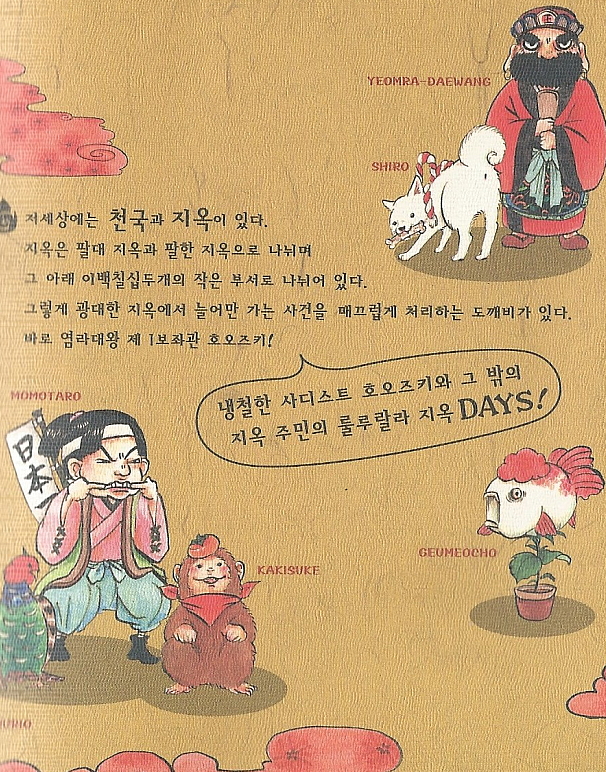 YEOMRA-DAEWANG
SHIRO
저세상에는 천국과 지옥이 있다.
지옥은 팔대 지옥과 팔한 지옥으로 나뉘며
그 아래 이백칠십두개의 작은 부서로 나뉘어 있다.
그렇게 광대한 지옥에서 늘어만 가는 사건을 매끄럽게 처리하는 도깨비가 있다.
바로 염라대왕 제 1보좌관 호오즈키!
냉철한 사디스트 호오즈키와 그 밖의
지옥 주민의 룰루랄라 지옥 DAYS!
MOMOTARO
日本一
GEUMEOCHO
KAKISUKE